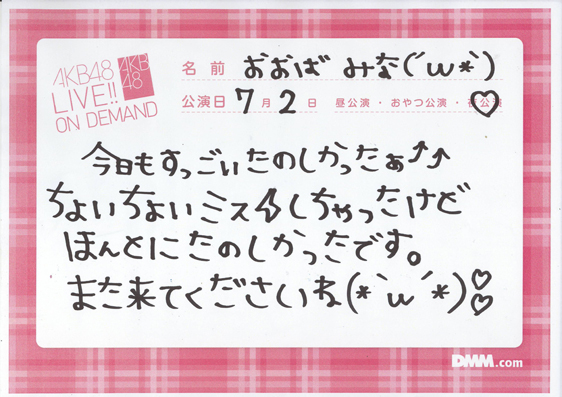 AKB48
LIVE!!
ON DEMAND
AKB
48
名前 おおば みな(´ω*`)
公演日 7月2日 昼公演・おやつ公演・夜公演
今日もすっごいたのしかったぁ↑↑
ちょいちょいミスしちゃったけど
ほんとにたのしかったです。
また来てくださいね(*`ω´*)♡♡
DMM.com